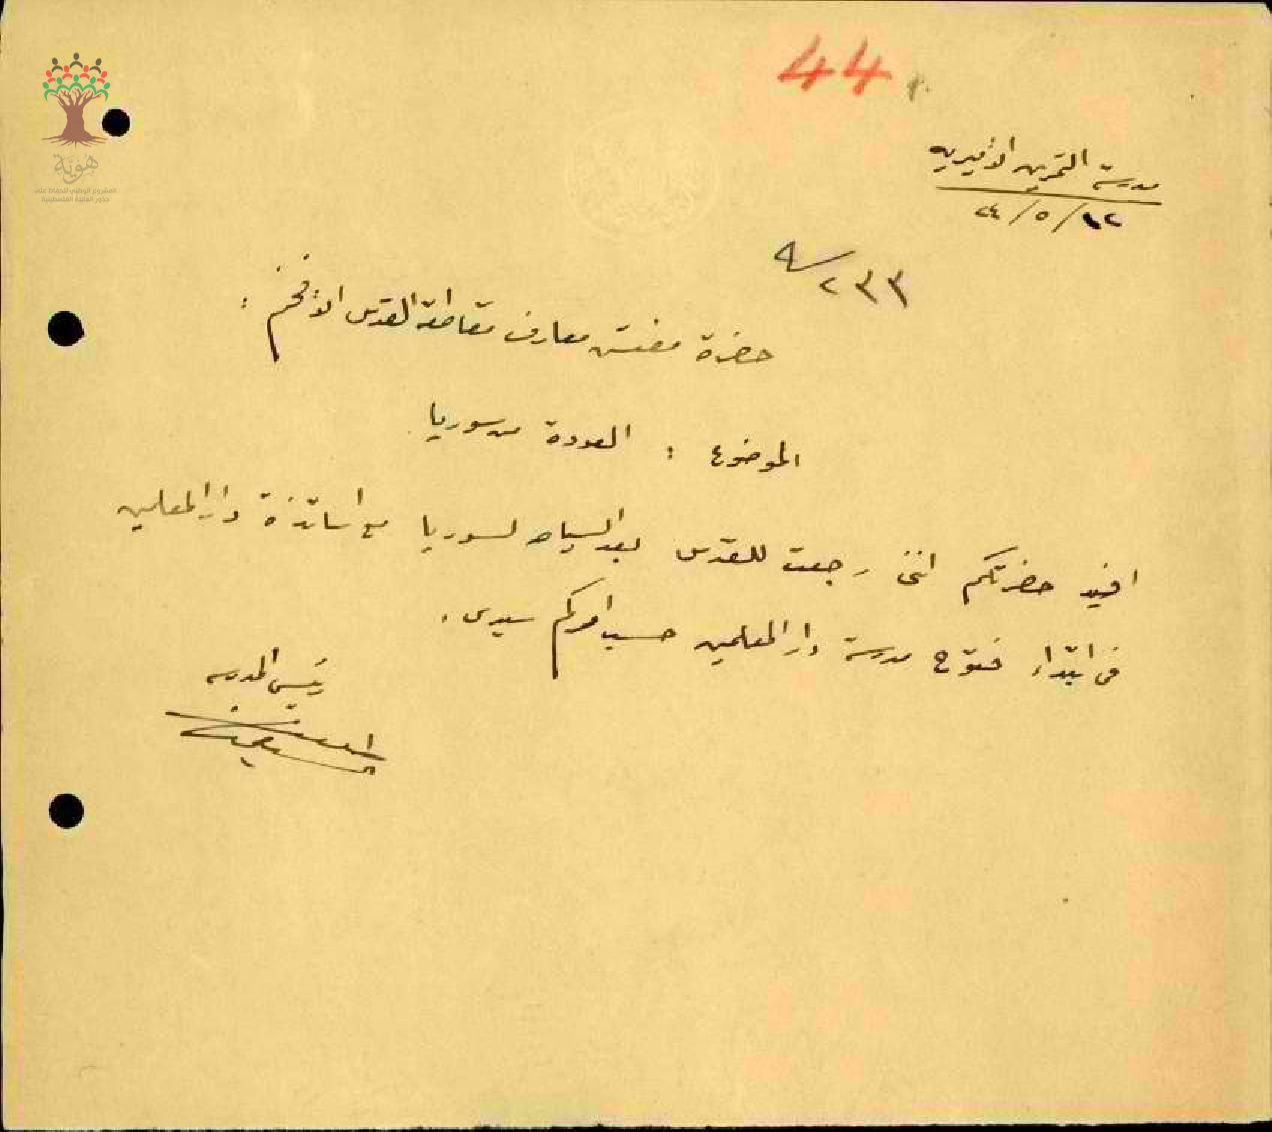 44
هوية
المشروع الوطني للحفاظ على
جذور العائلة الفلسطينية
مدرسة التمرين الأميريه
١٢/٥/٢٤
٩/٢٣٣
حضرة مفتش معارف مقاطعة القدس الأفخم :
الموضوع : العودة من سوريا
افيد حضرتكم انني رجعت للقدس بعد السياحه لسوريا مع اساتذة دار المعلمين
في ابتداء فتوح مدرسة دار المعلمين حسب امركم سيدي .
رئيس المدرسه